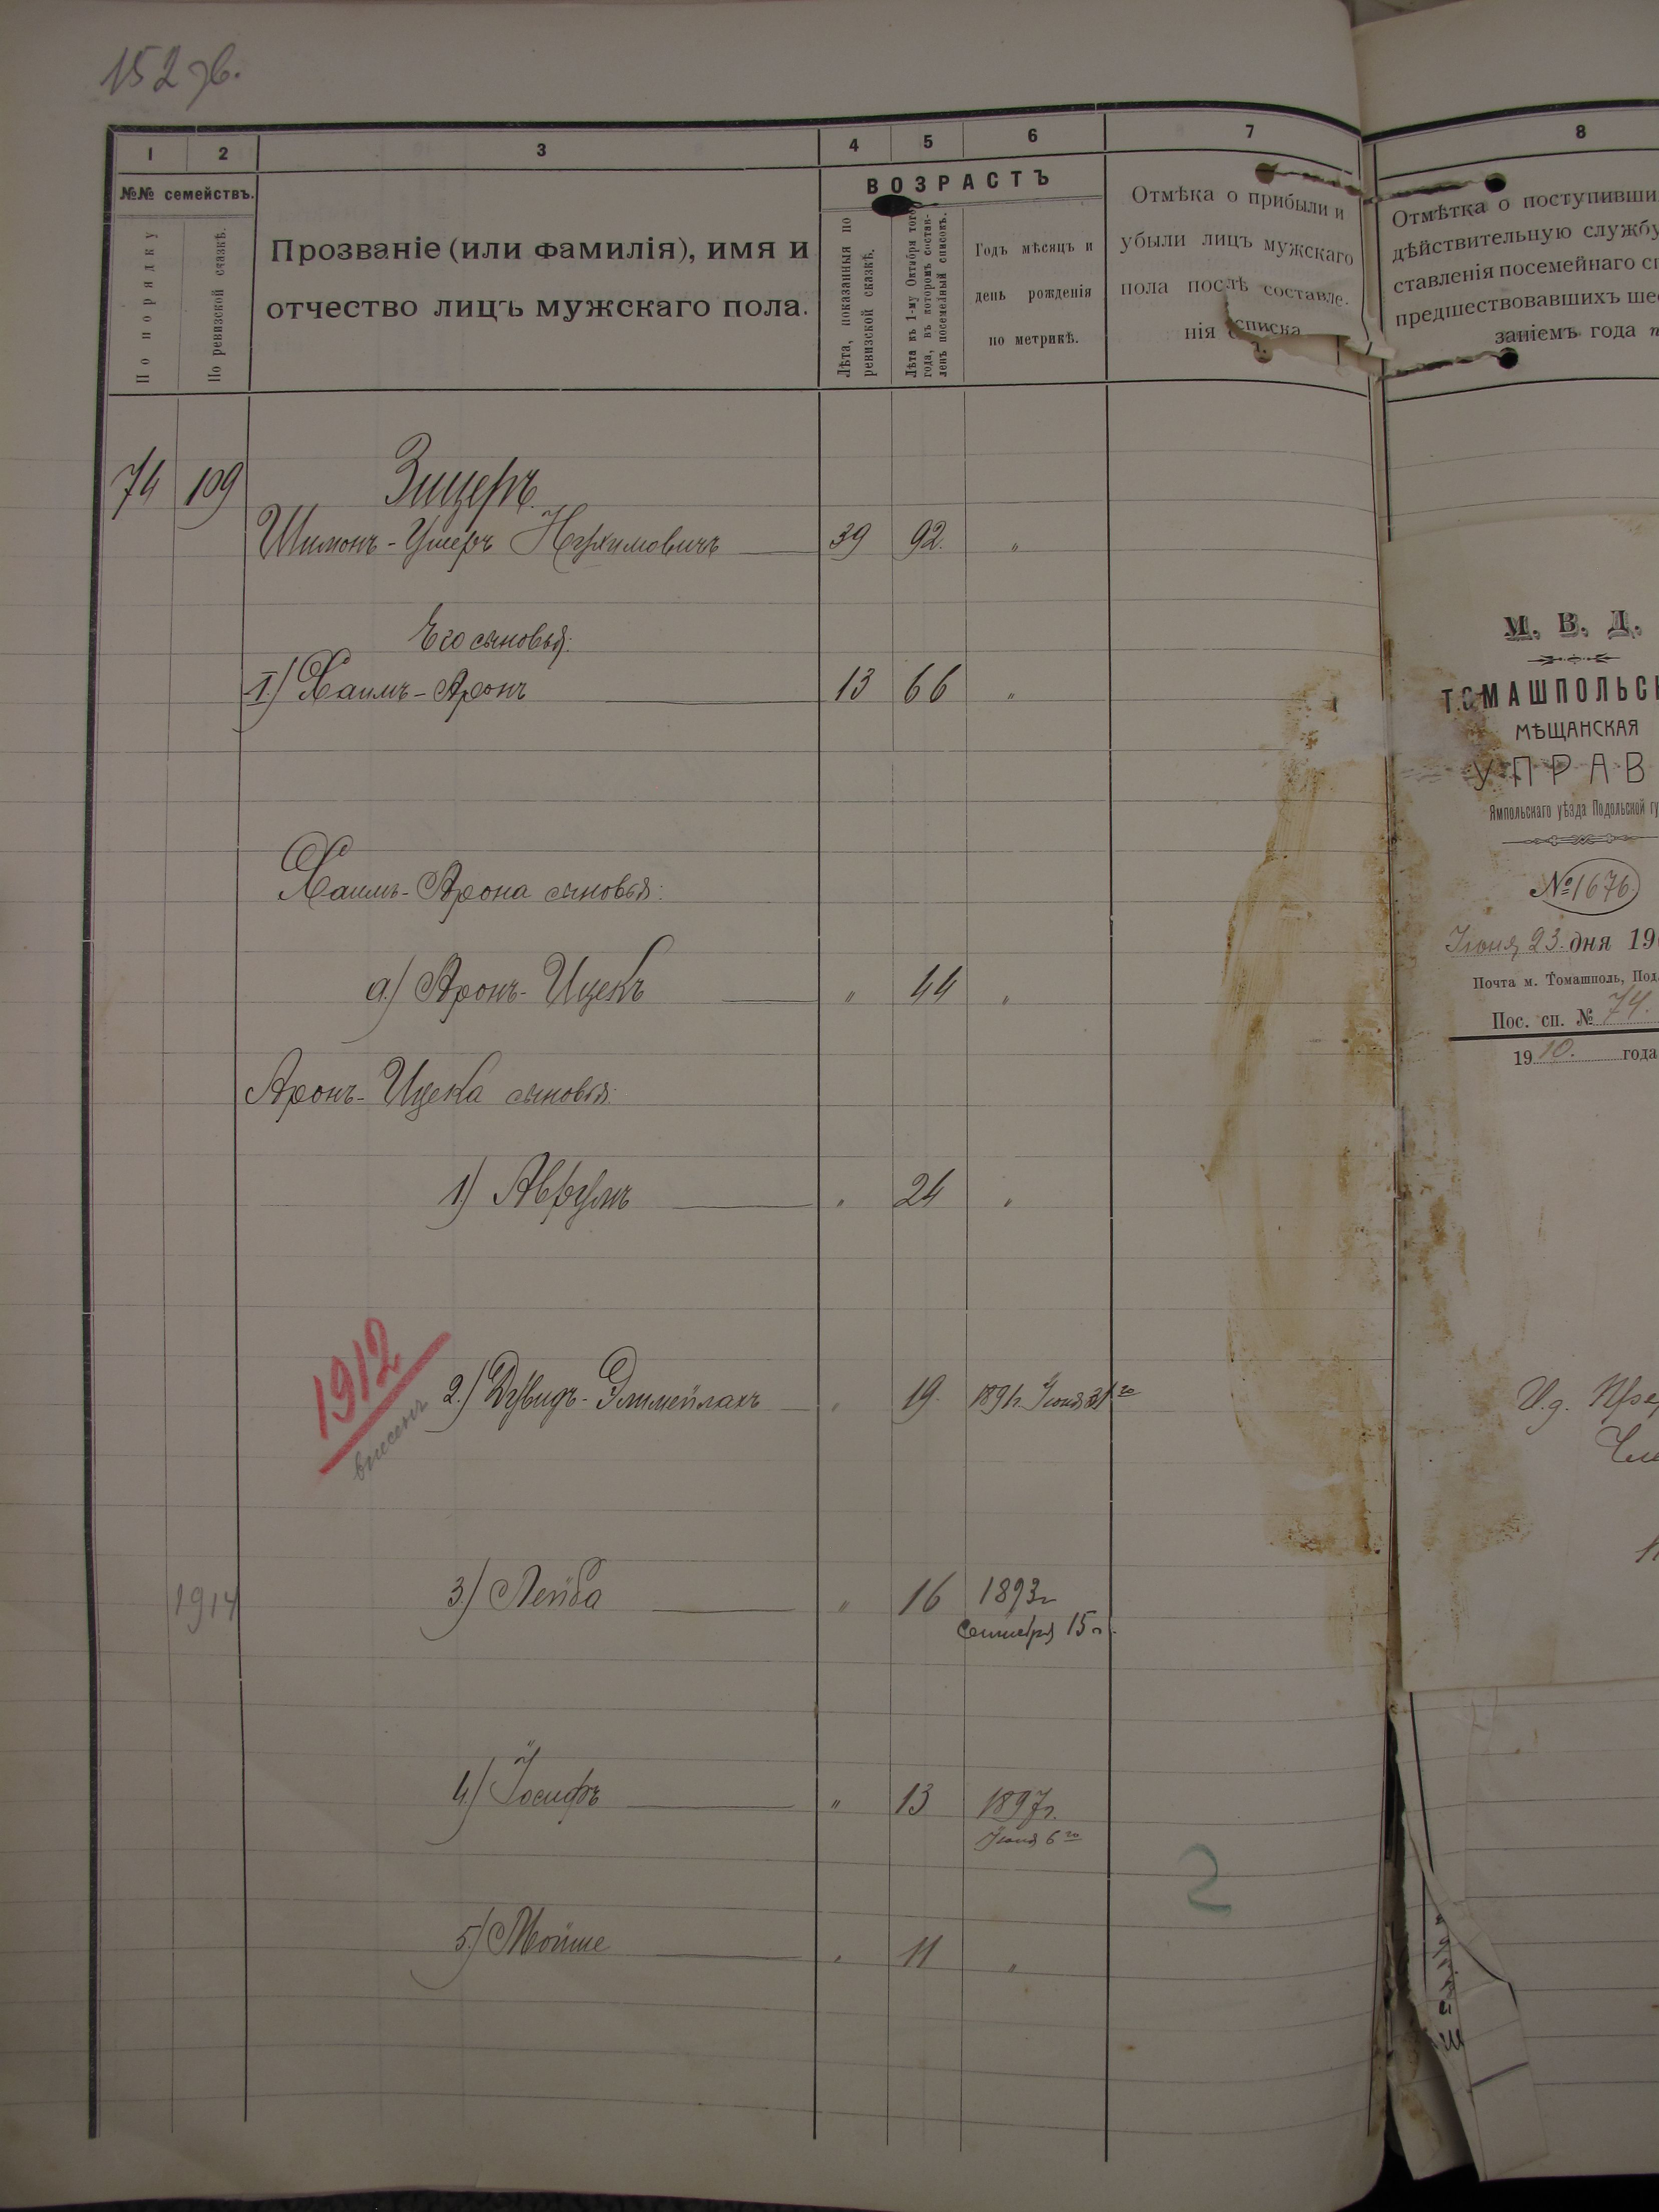 152 об.
1 2 3 4 5 6 7
№№ семействъ.
По порядку
По ревизской сказкѣ.
Прозваніе (или фамилія), имя и
отчество лицъ мужскаго пола.
ВОЗРАСТЪ
Лѣта, показанныя по
ревизской сказкѣ.
Лѣта къ 1-му Октября того
года, въ которомъ состав-
ленъ посемейный списокъ.
Годъ мѣсяцъ и
день рожденія
по метрикѣ.
Отмѣка о прибыли и
убыли лицъ мужскаго
пола послѣ составле-
нія списка
74 109 Зицеръ
Шимонъ-Ушеръ Нухимовичъ 39 92. "
Его сыновья:
I.) Хаимъ-Аронъ 13 66 "
Хаимъ-Арона сыновья:
а.) Аронъ-Ицекъ " 44 "
Аронъ-Ицека сыновья:
1.) Аврумъ " 24 "
1912
внесенъ
2.) Дувидъ-Элимейлахъ " 19. 1891г. Іюня го
1914 3.) Лейба " 16 1893г
Сентября 15г.
4.) Іосифъ " 13 1897г.
Іюня 6го
5.) Мойше " 11 "
2
8
Отмѣтка о поступивши
дѣйствительную службу
ставленія посемейнаго сп
предшествовавшихъ ше
заніемъ года
М. В. Д.
ТОМАШПОЛЬСК
МѢЩАНСКАЯ
УПРАВ
Ямпольскаго уѣзда Подольской гу
№ 1676.
Іюня 23. дня 19
Почта м. Томашполь, Под.
Пос. сп. № 74.
1910. года
И.д.